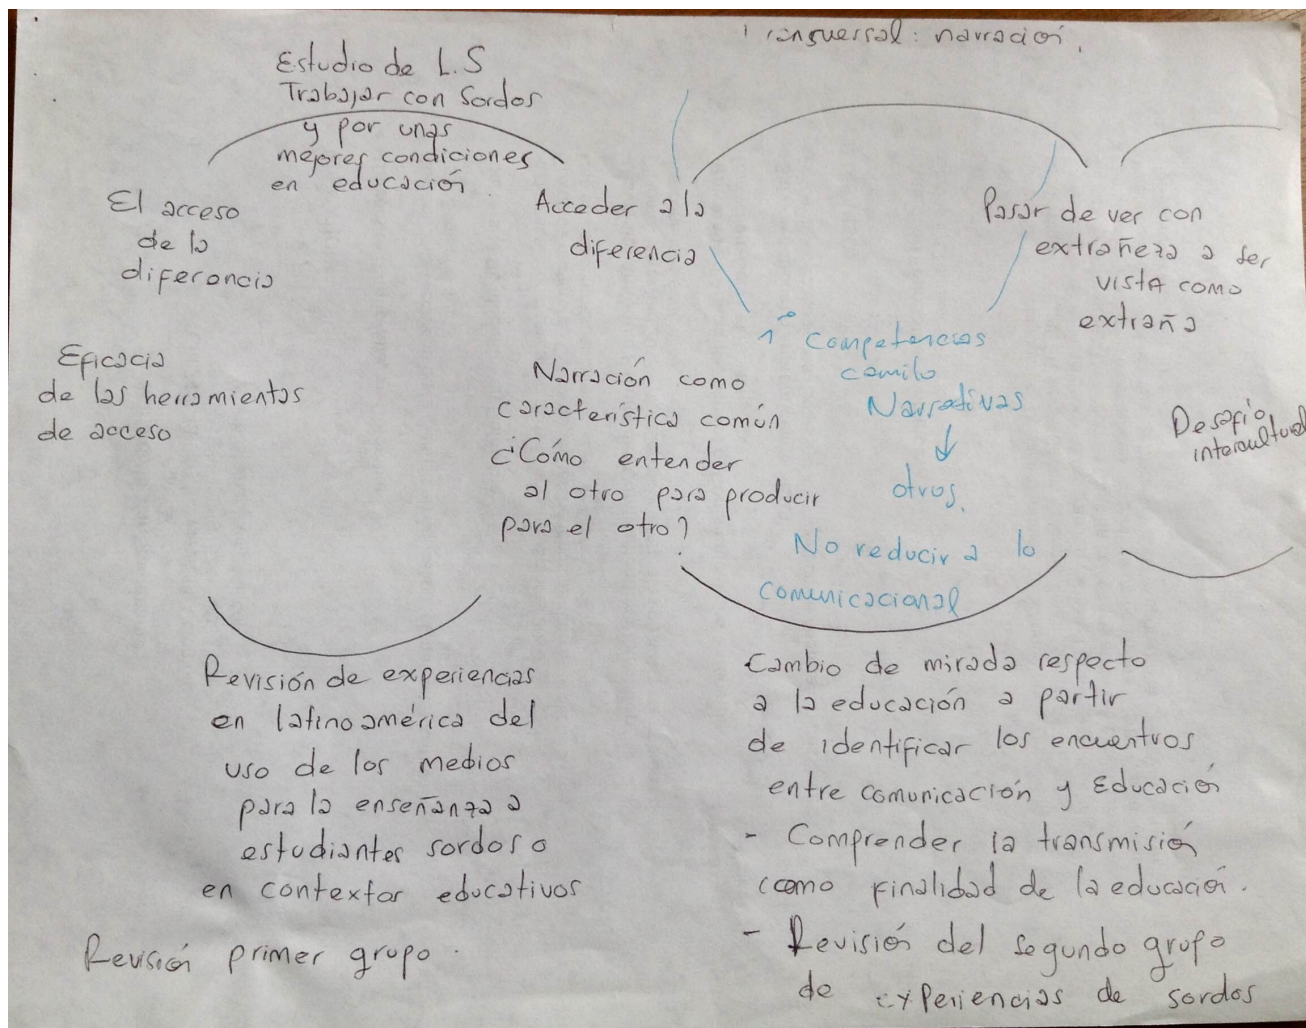 Transversal: narración.
Estudio de L.S
Trabajar con Sordos
y por unas
mejores condiciones
en educación.
El acceso
de la
diferencia
Acceder a la
diferencia
Pasar de ver con
extrañeza a ser
vista como
extraña
Eficacia
de las herramientas
de acceso
Narración como
característica común
¿Cómo entender
al otro para producir
para el otro?
1º Competencias
camilo
Narrativas
↓
otros.
No reducir a lo
comunicacional
Desafío
intercultural
Revisión de experiencias
en latinoamérica del
uso de los medios
para la enseñanza a
estudiantes sordos o
en contextos educativos
Revisión primer grupo.
Cambio de mirada respecto
a la educación a partir
de identificar los encuentros
entre comunicación y Educación
- Comprender la transmisión
como finalidad de la educación.
- Revisión del segundo grupo
de experiencias de sordos